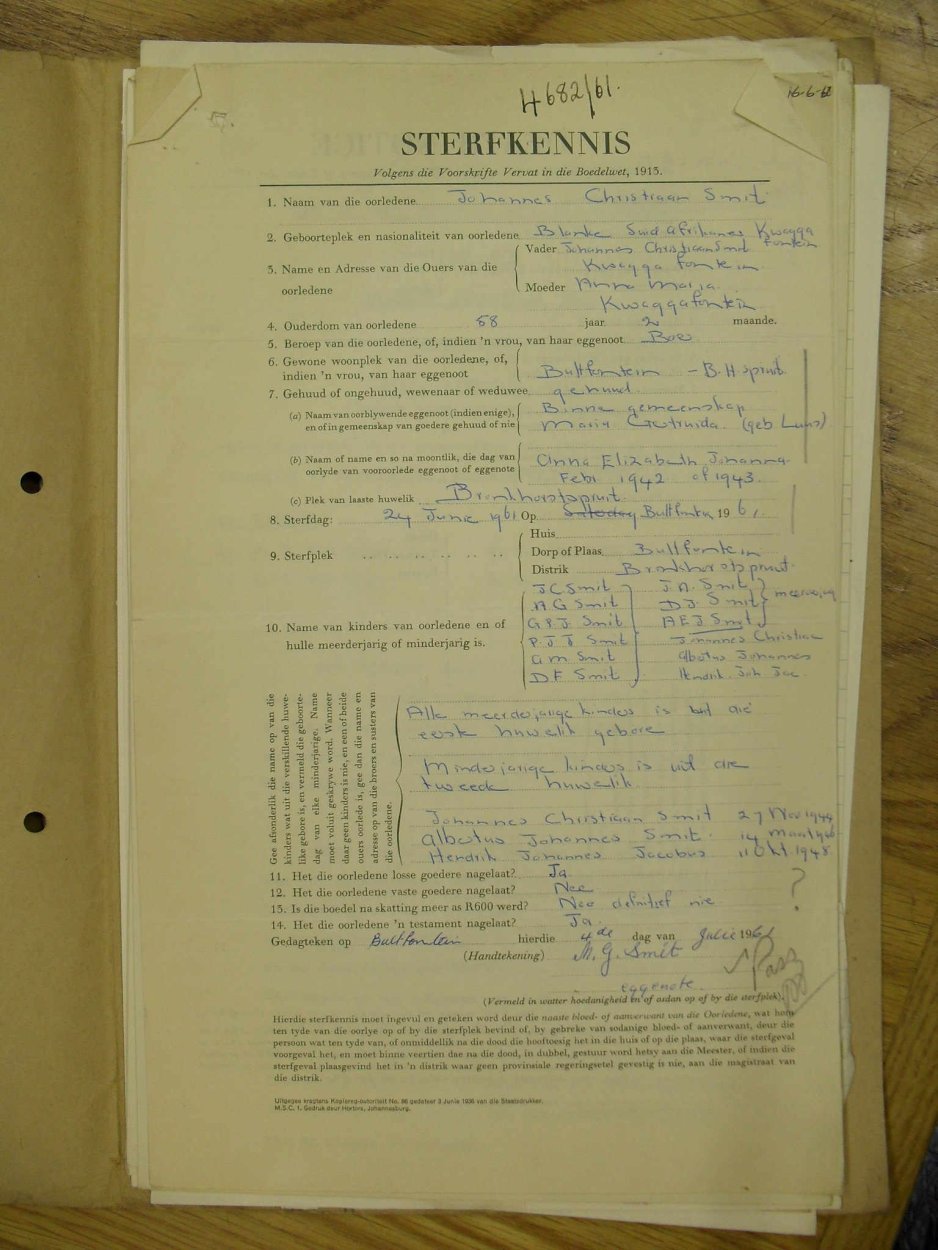 4682/61.
STERFKENNIS
Volgens die Voorskrifte Vervat in die Boedelwet, 1913.
1. Naam van die oorledene Johannes Christiaan Smit
2. Geboorteplek en nasionaliteit van oorledene Blanke Suid Afrikaner Kwagga fontein
3. Name en Adresse van die Ouers van die oorledene
Vader Johannes Christiaan Smit
Kwagga fontein
Moeder Anna Maria
Kwaggafontein
4. Ouderdom van oorledene 58 jaar 2 maande.
5. Beroep van die oorledene, of, indien 'n vrou, van haar eggenoot Boer
6. Gewone woonplek van die oorledene, of,
indien 'n vrou, van haar eggenoot
Bultfontein - B.H.spruit
7. Gehuud of ongehuud, wewenaar of weduwee gehuud
(a) Naam van oorblywende eggenoot (indien enige),
en of in gemeenskap van goedere gehuud of nie
Binne gemeenskap
Maria Gertruida (geb
(b) Naam of name en so na moontlik, die dag van
oorlyde van vooroorlede eggenoot of eggenote
Anna Elizabeth Johanna
Febr 1942 of 1943.
(c) Plek van laaste huwelik Bronkhorstspruit
8. Sterfdag: 24 Junie 1961 Op Bultfontein 1961
9. Sterfplek
Huis
Dorp of Plaas Bultfontein
Distrik Bronkhorstspruit
10. Name van kinders van oorledene en of
hulle meerderjarig of minderjarig is.
J.C Smit J.A. Smit meerderjarig
A G Smit D.J. Smit
G.P.J. Smit A E J Smit
P.J.J Smit Johannes Christiaan
G M Smit Albertus Johannes
D F Smit Hendrik Joh Jac
Gee afsonderlik die name op van die
kinders wat uit die verskillende huwe-
like gebore is, en vermeld die geboorte-
dag van elke minderjarige. Name
moet voluit geskrywe word. Wanneer
daar geen kinders is nie, en een of beide
ouers oorlede is, gee dan die name en
adresse op van die broers en susters van
die oorledene.
Alle meerderjarige kinders is uit die
eerste huwelik gebore
Minderjarige kinders is uit die
tweede huwelik.
Johannes Christiaan Smit 27 Nov 1944
Albertus Johannes Smit. 14 Maart 1946
Hendrik Johannes Jacobus 11 Okt. 1948
11. Het die oorledene losse goedere nagelaat? Ja
12. Het die oorledene vaste goedere nagelaat? Nee ?
13. Is die boedel na skatting meer as R600 werd? Nee definitief nie
14. Het die oorledene 'n testament nagelaat? Ja
Gedagteken op Bultfontein hierdie 4de dag van Julie 1961
(Handtekening) M. G. Smit
eggenote
(Vermeld in watter hoedanigheid en of aidan op of by die sterfplek).
Hierdie sterfkennis moet ingevul en geteken word deur die naaste bloed- of aanverwant van die Oorledene, wat hom
ten tyde van die oorlye op of by die sterfplek bevind of, by gebreke van sodanige bloed- of aanverwant, deur die
persoon wat ten tyde van, of onmiddellik na die dood die hooftoesig het in die huis of op die plaas, waar die sterfgeval
voorgeval het, en moet binne veertien dae na die dood, in dubbel, gestuur word hetsy aan die Meester, of indien die
sterfgeval plaasgevind het in 'n distrik waar geen provinsiale regeringsetel gevestig is nie, aan die magistraat van
die distrik.
Uitgegee kragtens Kopiereg-outoriteit No. 86 gedateer 3 Junie 1936 van die Staatsdrukker.
M.S.C. 1. Gedruk deur Hortors, Johannesburg.